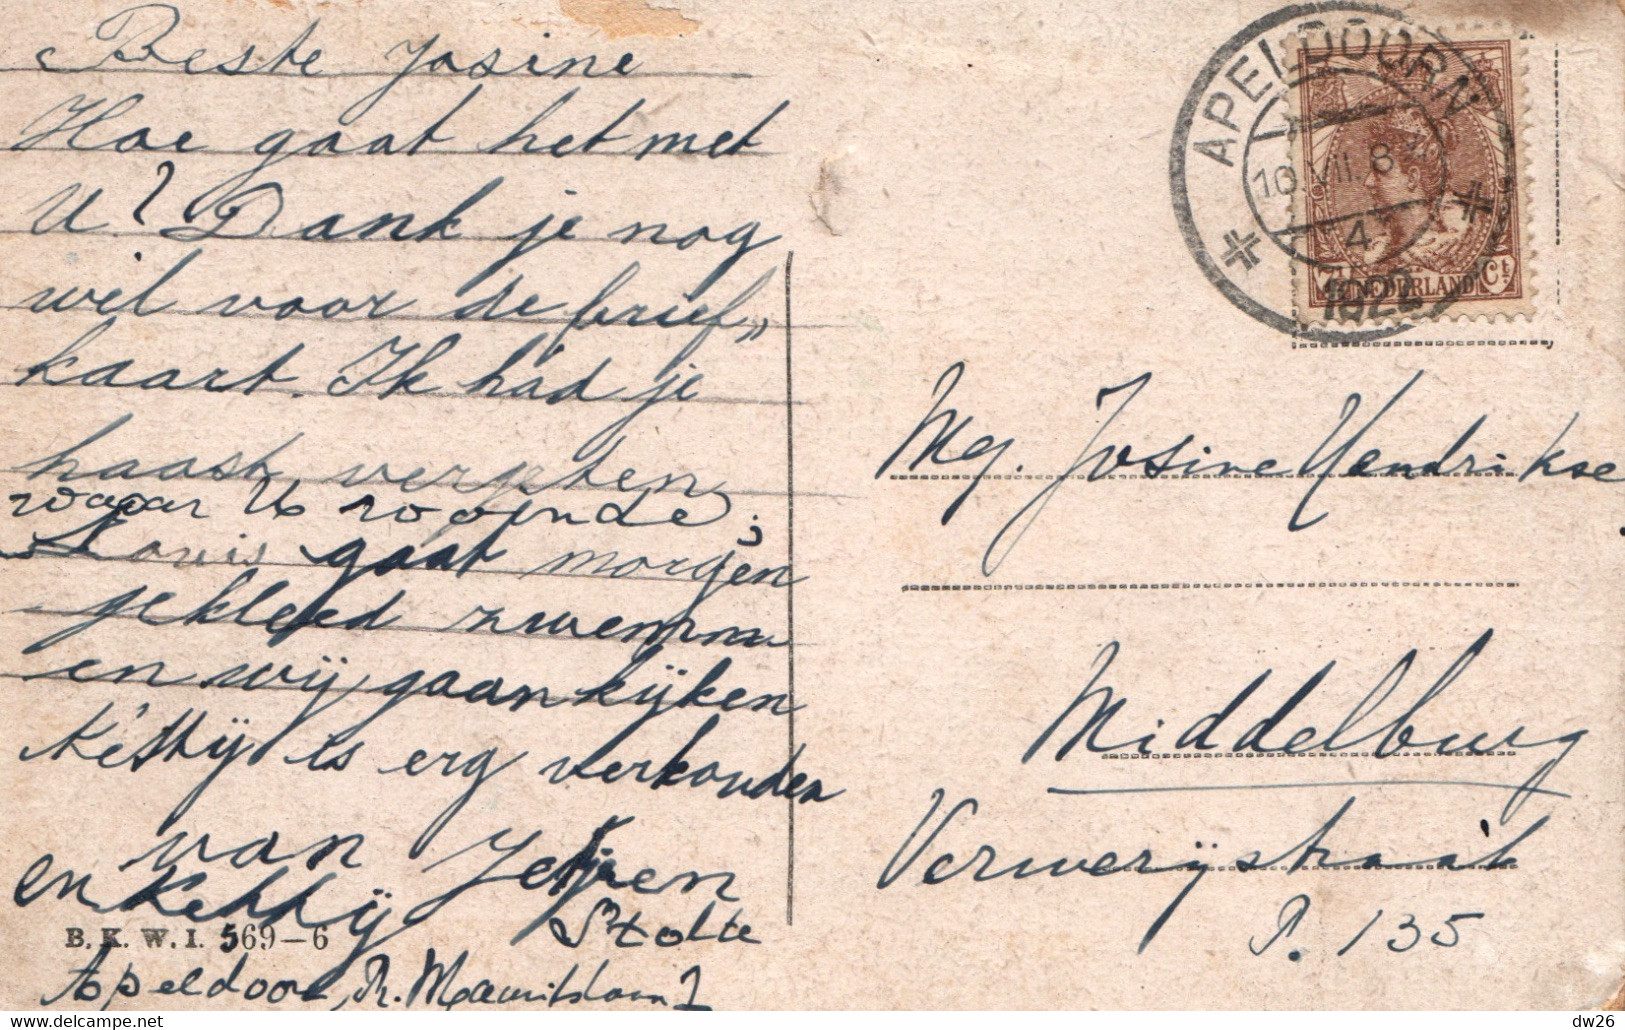 Beste Josine
Hoe gaat het met
U? Dank je nog
wel voor de brief„
kaart. Ik had je
haast vergeten
waar U woonde;
Louis gaat morgen
gekleed zwemmen
en wij gaan kijken
Ketty is erg verkouden
van
en Ketty
Stolte
B. K. W. I. 569-6
Apeldoorn, Pr. Mauritslaan
APELDOORN
10.VII.8
4
1922
7½ NEDERLAND Ct
Mej. Josine Hendrikse
Middelburg
Verwerijstraat
P. 135
delcampe.net
dw26